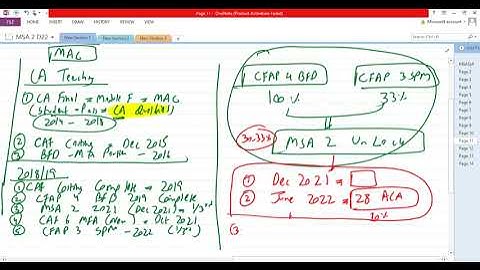 Page 11 - OneNote (Product Activation Failed)
FILE
Microsoft account
MSA 2 D22
New Section 1
New Section 2
New Section 3
MAC
CA Teaching
① CA Final = Module F = MAC
(Student = Pass = CA Qualified)
2014 - 2018
② CAF Costing = Dec 2015
③ BFD - Mth - 2016
2018/19
① CAF Costing Complete = 2019
② CFAP 4 BFD 2019 Complete
③ MSA 2 2021 (Dec 2021) = 1/3rd
④ CAF 6 MFA (New) = Oct 2021
⑤ CFAP 3 SPM - 2022 (1/3rd)
CFAP 4 BFD
CFAP 3 SPM
100%
33%
30-33%
MSA 2 Unlock
① Dec 2021 =
② June 2022 = 28 ACA
20%
③
Page 1
Page 2
Page 3
Page 4
Page 5
Page 6
Page 7
Page 8
Page 9
Page 10
Page 11
Page 12
Page 13
Page 14